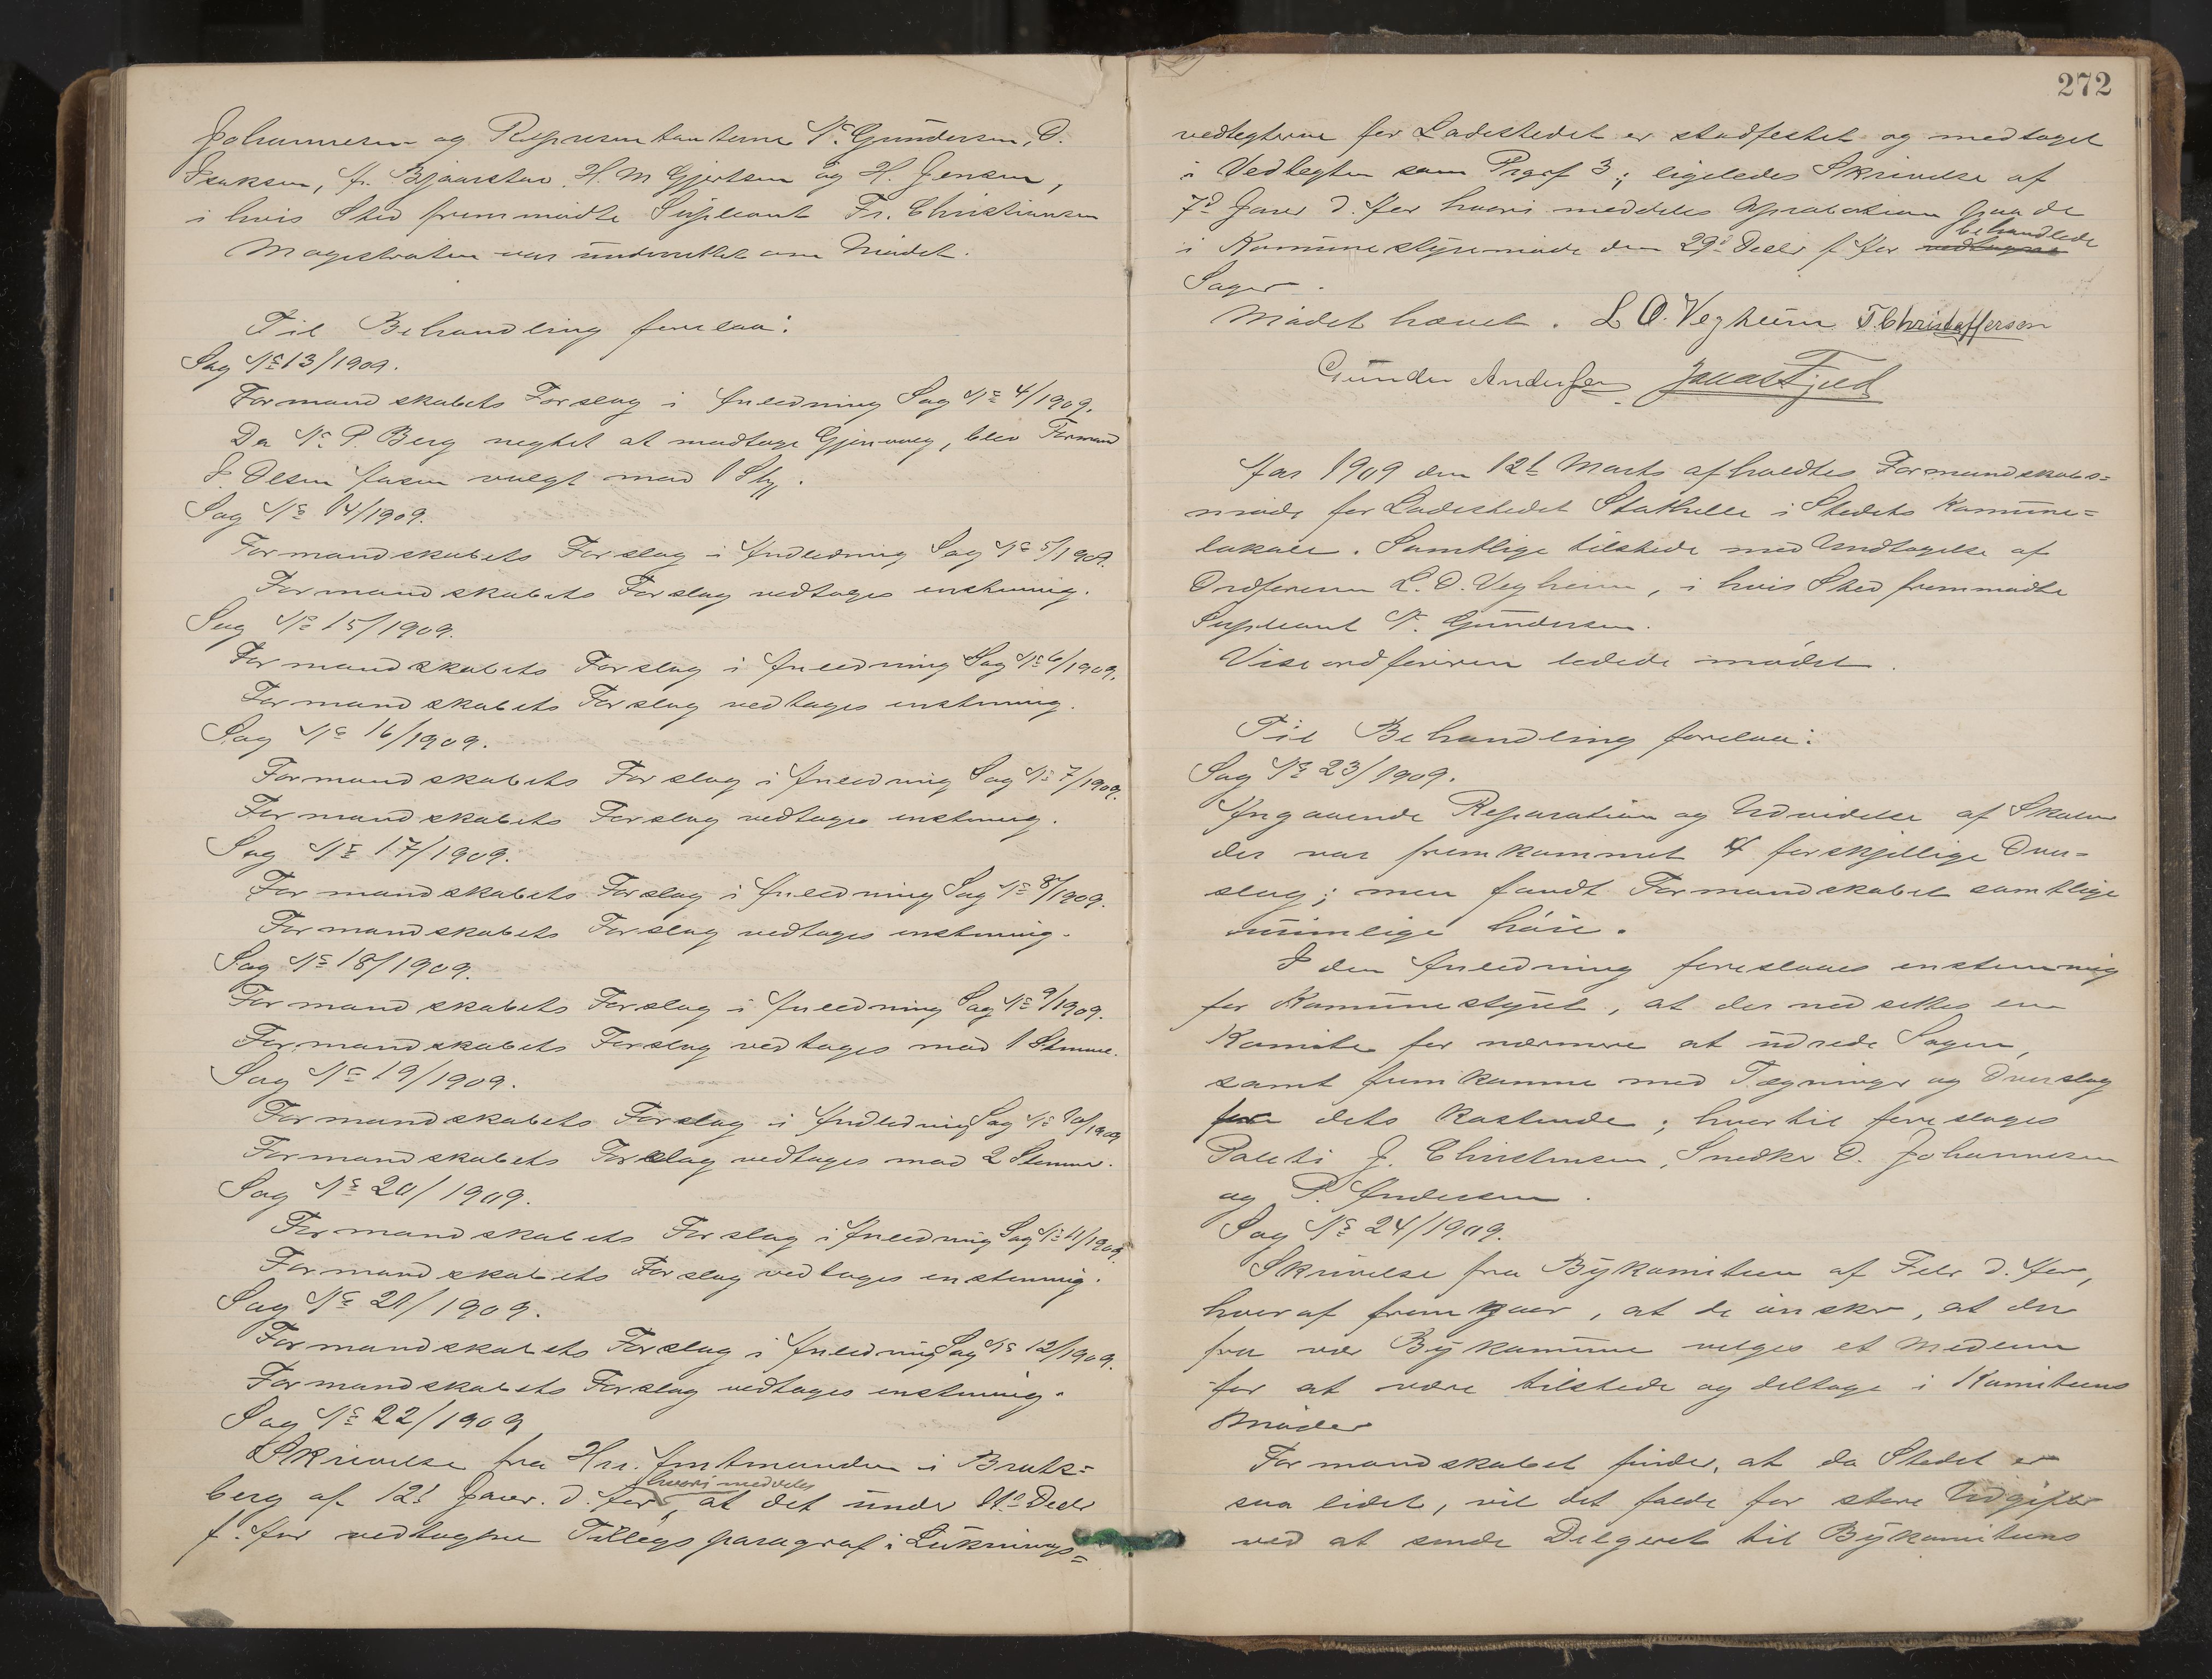 Johannesen og Repræsentanterne N. Gundersen, O.
Isaksen, A. Bjaarstav, H. M. Gjertsen og H. Jensen,
i hvis Sted fremmødte Supleant Fr. Christiansen
Magistraten var underrettet om Mødet.
Til Behandling forelaa:
Sag No 13/1909.
Formandskabets Forslag i Anledning Sag No 4/1909.
Da N. P. Berg negtet at modtage Gjenvalg, blev Formand
J. Olsen Aasen valgt mod 1 St.
Sag No 14/1909.
Formandskabets Forslag i Andledning Sag No 5/1909.
Formandskabets Forslag vedtages enstemig.
Sag No 15/1909.
Formandskabets Forslag i Anledning Sag No 6/1909.
Formandskabets Forslag vedtages enstemig.
Sag No 16/1909.
Formandskabets Forslag i Anledning Sag No 7/1909.
Formandskabets Forslag vedtages enstemig.
Sag No 17/1909.
Formandskabets Forslag i Anledning Sag No 8/1909.
Formandskabets Forslag vedtages enstemig.
Sag No 18/1909.
Formandskabets Forslag i Anledning Sag No 9/1909.
Formandskabets Forslag vedtages mod 1 Stemme.
Sag No 19/1909.
Formandskabets Forslag i Andledning Sag No 10/1909
Formandskabets Forslag vedtages mod 2 Stemmer.
Sag No 20/1909.
Formandskabets Forslag i Anledning Sag No 11/1909.
Formandskabets Forslag vedtages enstemmig.
Sag No 21/1909.
Formandskabets Forslag i Anledning Sag No 12/1909.
Formandskabets Forslag vedtages enstemig.
Sag No 22/1909
Skrivelse fra Hrr. Amtmanden i Brats=
berg af 12t Janr. d. Aar, hvori meddeles at det under 11te Decbr
f. Aar vedtagne Tillegsparagraf i Luknings=
272
vedtegterne for Ladestedet er stadfestet og medtaget
i Vedtegten som Pragf 3; ligeledes Skrivelse af
7d Janr d. Aar hvori meddeles Aprobation paa de
i Komunestyremøde den 29d Decbr f. Aar vedtagne behandlede
Sager.
Mødet hævet. L O. Vegheim T. Christoffersen
Gunder Andersen Jonas Fjeld
Aar 1909 den 12t Marts afholdtes Formandskabs=
møde for Ladestedet Stathelle i Stedets Komune=
lokale. Samtlige tilstede med Undtagelse af
Ordføreren L. O. Vegheim, i hvis Sted fremmødte
Supleant N. Gundersen.
Viseordføreren ledede mødet.
Til Behandling forelaa:
Sag No 23/1909.
Angaaende Reparation og Udvidelse af Skolen
der var fremkommet 4 forskjellige Over-
slag; men fandt Formandskabet samtlige
urimlige høie.
I den Anledning foreslaaes enstemmig
for Komunestyret, at der nedsettes en
Komite for nærmere at udrede Sagen,
samt fremkomme med Tegninger og Overslag
for dets Kostende; hvortil foreslages
J. Christensen, Snedker O. Johannesen
og P. Andersen.
Sag No 24/1909.
Skrivelse fra Bykomiteen af Febr d. Aar,
hveraf fremgaar, at de ønsker, at der
fra vor Bykomune velges et Medlem
for at være tilstede og deltage i Komiteens
Møder
Formandskabet finder, at da Stedet er
saa lidet, vil det falde for store Udgifter
ved at sende Delgeret til Bykomiteens